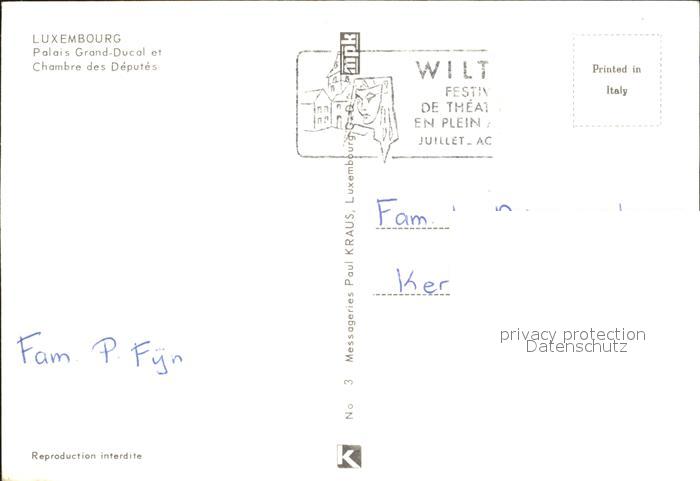 LUXEMBOURG
Palais Grand-Ducal et
Chambre des Députés
WILT
FESTIV
DE THÉAT
EN PLEIN A
JUILLET - AO
Printed in
Italy
Fam.
Ker
Fam. P. Fijn
privacy protection
Datenschutz
No 3 Messageries Paul KRAUS, Luxembourg-G
Reproduction interdite
K